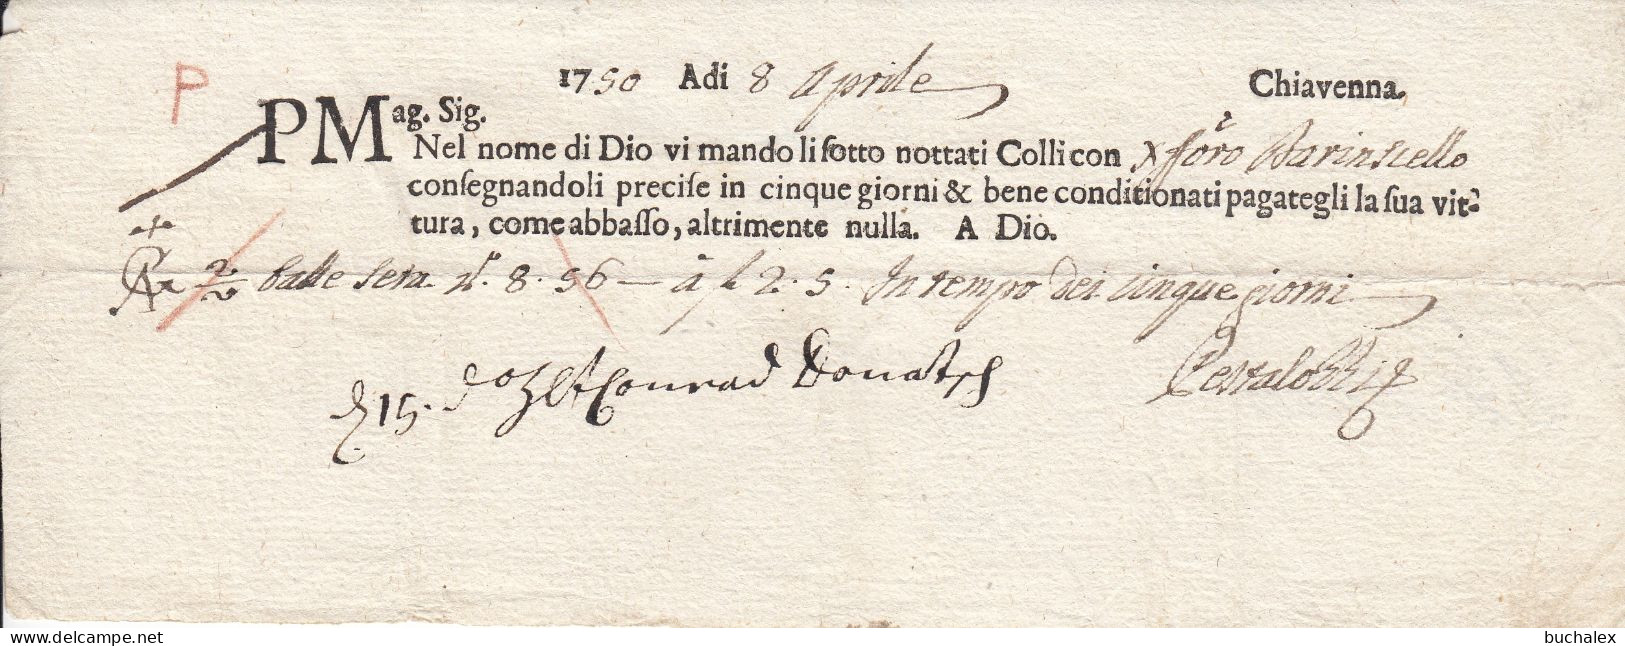 P
1750 Adi 8 Aprile Chiavenna.
PMag. Sig.
Nel nome di Dio vi mando li ſotto nottati Colli con Xfforo
conſegnandoli preciſe in cinque giorni & bene conditionati pagategli la ſua vit-
tura, come abbaſſo, altrimente nulla. A Dio.
2 balle Seta N. 8. 56 — à f 2. 5. In tempo dei cinque giorni
Pestalozzi
15. Conrad Donatsch
www.delcampe.net
buchalex